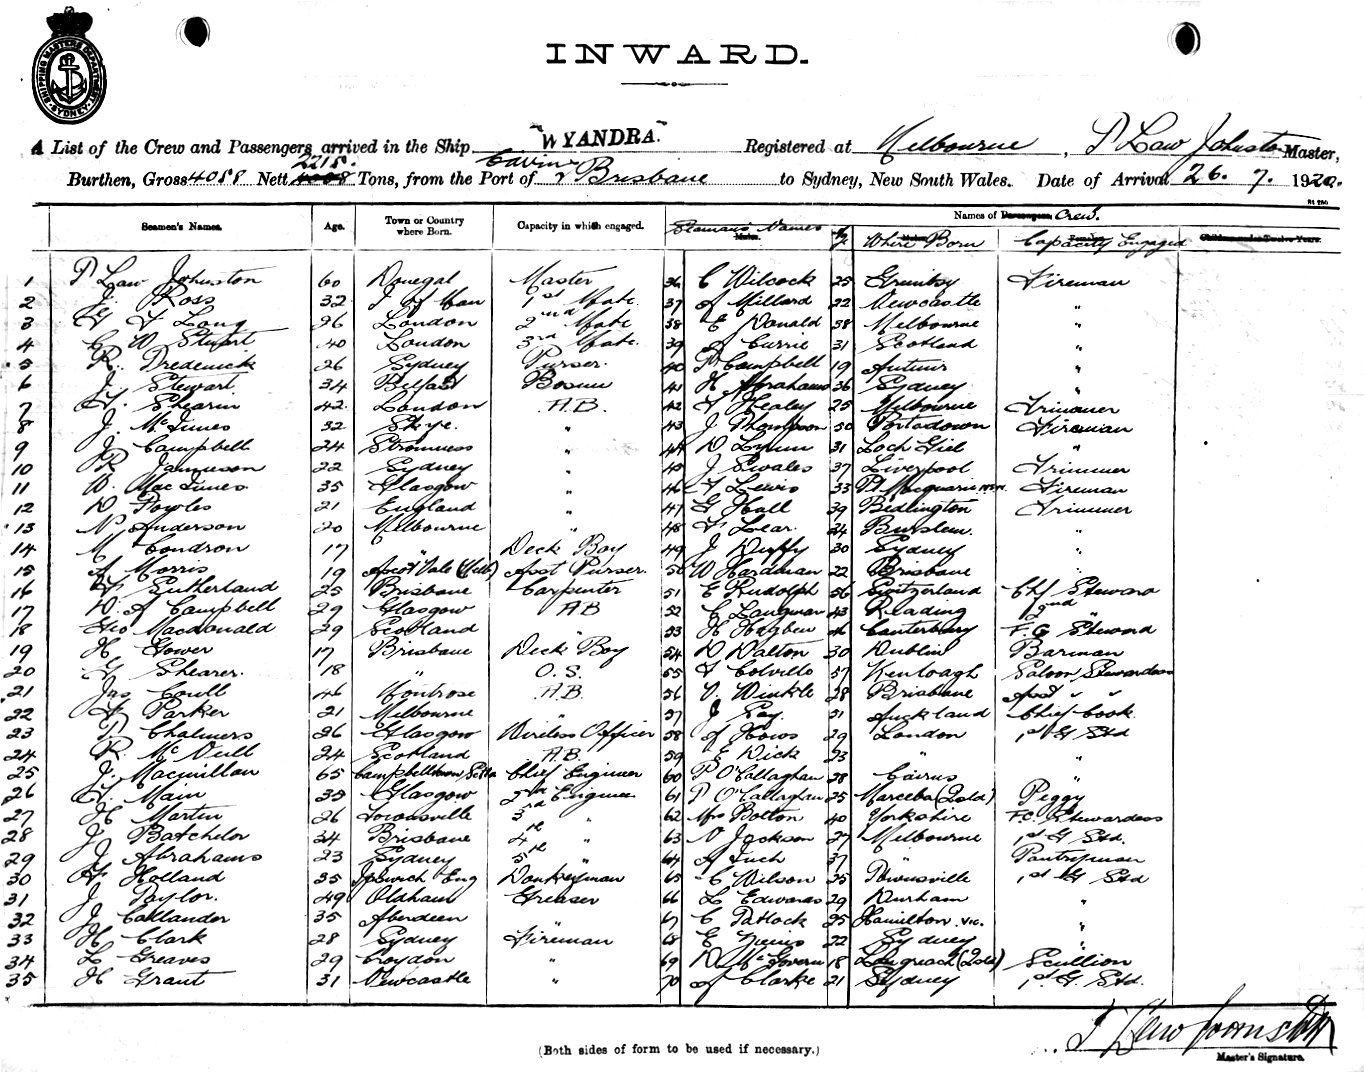 SHIPPING MASTERS DEPARTMENT SYDNEY
INWARD.
A List of the Crew and Passengers arrived in the Ship "WYANDRA" Registered at Melbourne, P Law Johnston Master,
Burthen, Gross 4058 Nett 2215. Tons, from the Port of Cairns & Brisbane to Sydney, New South Wales. Date of Arrival 26. 7. 1920.
Seamen's Names. Age. Town or Country where Born. Capacity in which engaged. Seamans Names Where Born Capacity Engaged Names of Crew.
1 P Law Johnston 60 Donegal Master 36 C Wilcock 25 Grimsby Fireman
2 J. Ross 32 I of Man 1st Mate 37 A Millard 22 Newcastle "
3 Long 26 London 2nd Mate 38 E Donald 38 Melbourne "
4 G W Stuart 40 London 3rd Mate 39 J Currie 31 Scotland "
5 R. Dredenick 26 Sydney Purser. 40 P Campbell 19 "
6 J. Stewart 34 Belfast Bosun 41 H Abrahams 36 Sydney "
7 Shearin 42 London A.B. 42 Healey 25 Melbourne Trimmer
8 J. McInnes 32 Skye. " 43 J Thompson 50 Portadown Fireman
9 J Campbell 24 Stromness " 44 D Lynn 31 Loch Giel "
10 R Jamieson 22 Sydney " 45 J Swales 37 Liverpool Trimmer
11 D. MacInnes 35 Glasgow " 46 Lewis 33 Pt Macquarie NSW. Fireman
12 D Fowles 21 England " 47 G Hall 39 Bedlington Trimmer
13 N. Anderson 20 Melbourne " 48 Lear. 24 Burslem. "
14 M Condron 17 " Deck Boy 49 J Duffy 30 Sydney "
15 A Morris 19 Ascot Vale (Melb) Asst Purser. 50 W Hardman 22 Brisbane "
16 Sutherland 25 Brisbane Carpenter 51 E Rudolph 56 Switzerland Chf Steward
17 D. A Campbell 29 Glasgow AB 52 C Langman 43 Reading 2nd "
18 Geo Macdonald 29 Scotland " 53 H Hagben Canterbury F. C Steward
19 H Gower 17 Brisbane Deck Boy 54 D Dalton 30 Dublin Barman
20 G Shearer. 18 " O.S. 55 Colville 57 Saloon Stewardess
21 Jas Coull 46 Montrose A.B. 56 V. Winkle 28 Brisbane " "
22 Parker 21 Melbourne " 57 J Gay. 31 Auckland Chief Cook.
23 P Chalmers 26 Glasgow Wireless Officer 58 A Hows 29 London 1st G Std
24 R. McNeill 24 Scotland A.B. 59 E Dick 23 " "
25 J. Macmillan 65 Campbelltown Scotld Chief Engineer 60 P O'Callaghan 28 Cairns "
26 Main 35 Glasgow 2nd Engineer 61 P O'Callaghan 25 Mareeba (Qsld) Peggy
27 H Martin 26 Townsville 3rd " 62 Mrs Bolton 40 Yorkshire F.C. Stewardess
28 J Batchelor 34 Brisbane 4th " 63 N Jackson 27 Melbourne 1st G Std.
29 J Abrahams 23 Sydney 5th " 64 A Tuch 37 " Pantryman
30 Holland 35 Ipswich Eng Donkeyman 65 C Wilson 25 Townsville 1st G Std
31 J Taylor. 49 Oldham Greaser 66 L Edwards 29 Durham "
32 J Callander 35 Aberdeen " 67 C Patlock 25 Hamilton. Vic. "
33 H Clark 28 Sydney Fireman 68 E 22 Sydney "
34 L Greaves 29 Croydon " 69 D McGovern 18 Longreach (Qsld) Scullion
35 H Grant 31 Newcastle " 70 A Clarke 21 Sydney 1st G. Std.
P Law Johnston
(Both sides of form to be used if necessary.)
Master's Signature.